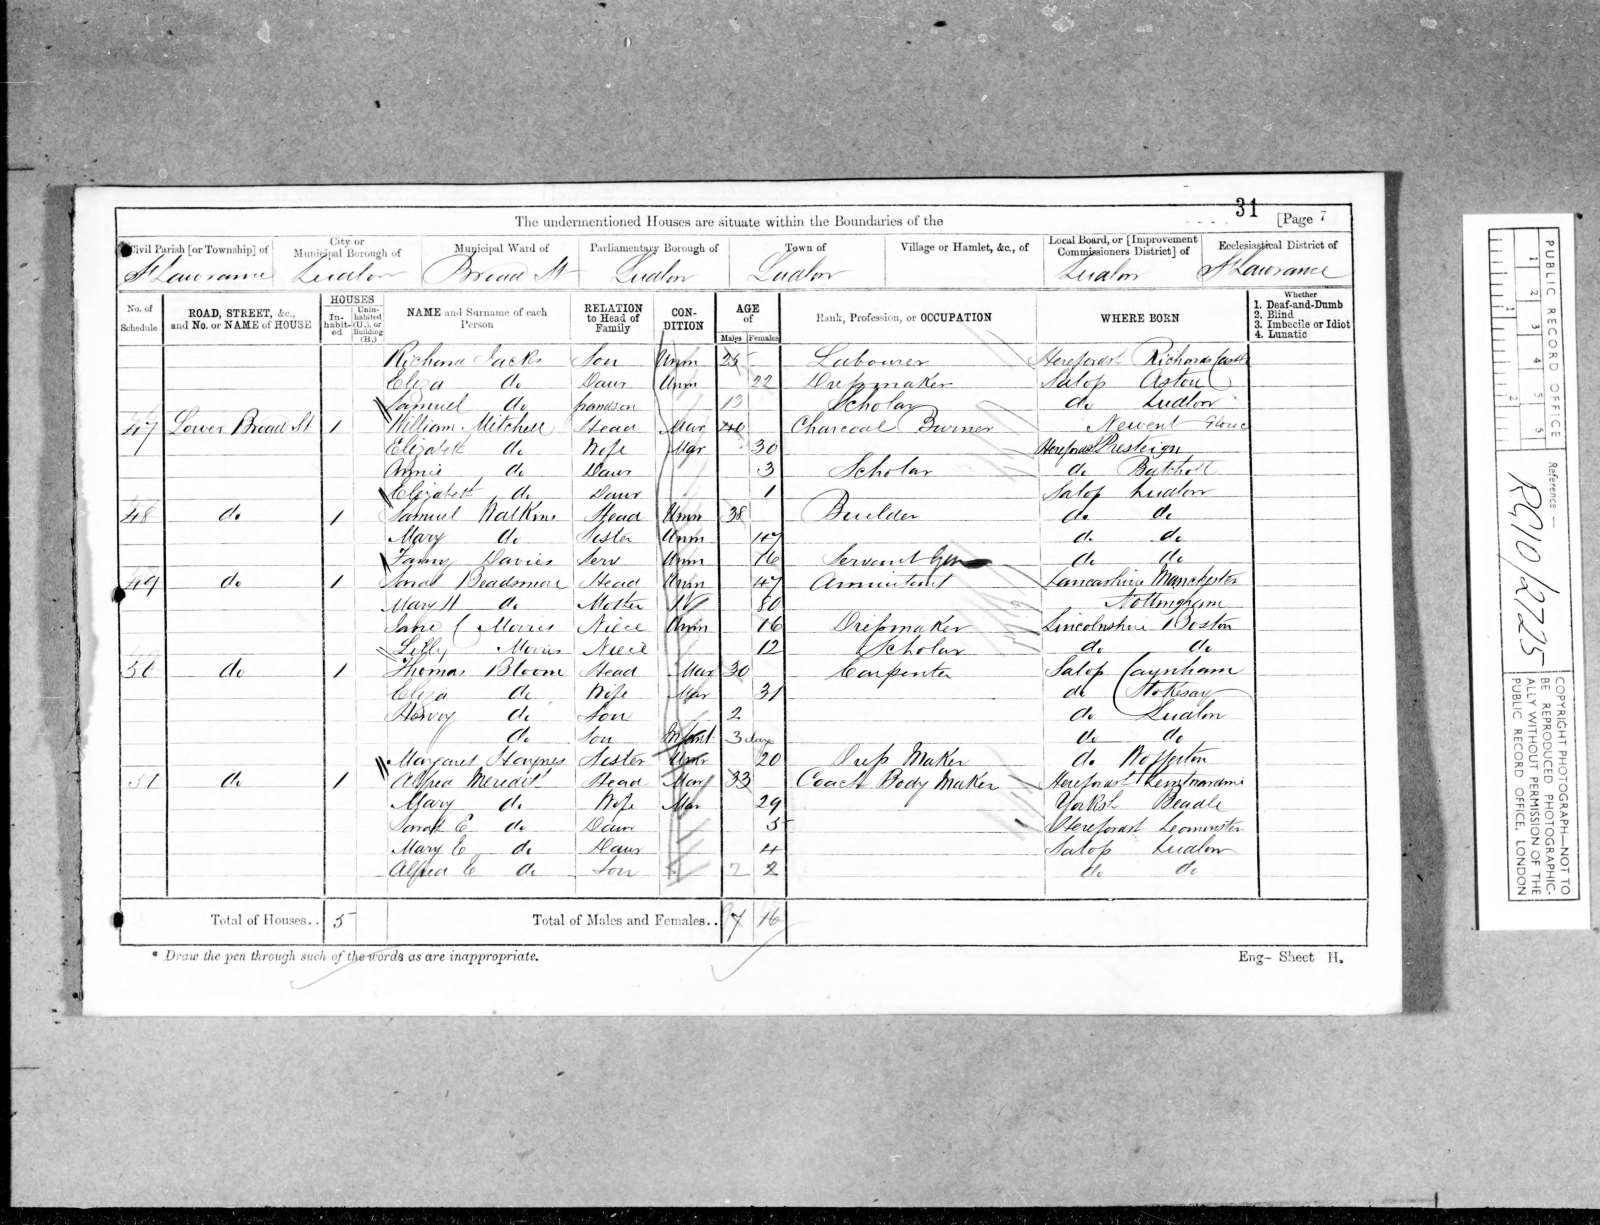 31
The undermentioned Houses are situate within the Boundaries of the [Page 7
Civil Parish [or Township] of City or Municipal Borough of Municipal Ward of Parliamentary Borough of Town of Village or Hamlet, &c., of Local Board, or [Improvement Commissioners District] of Ecclesiastical District of
St Lawrance Ludlow Broad St Ludlow Ludlow Ludlow St Lawrance
No. of Schedule ROAD, STREET, &c., and No. or NAME of HOUSE HOUSES In-habit-ed Unin-habited (U.), or Building (B.) NAME and Surname of each Person RELATION to Head of Family CON-DITION AGE of Males Females Rank, Profession, or OCCUPATION WHERE BORN Whether 1. Deaf-and-Dumb 2. Blind 3. Imbecile or Idiot 4. Lunatic
Richard Jacks Son Unm 25 Labourer Herefords Richards Castle
Eliza do Daur Unm 22 Dressmaker Salop Aston
Samuel do grandson 13 Scholar do Ludlow
47 Lower Broad St 1 William Mitchell Head Mar 40 Charcoal Burner Newent Glouc
Elizabeth do Wife Mar 30 Herefords Presteign
Annie do Daur 3 Scholar do
Elizabeth do Daur 1 Salop Ludlow
48 do 1 Samuel Watkins Head Unm 38 Builder do do
Mary do Sister Unm 47 do do
Fanny Davies Serv Unm 16 Servant Gen do do
49 do 1 Sarah Beadsmore Head Unm 47 Annuitant Lancashire Manchester
Mary H do Mother W 80 Nottingham
Jane C Morris Niece Unm 16 Dressmaker Lincolnshire Boston
Lilly Morris Niece 12 Scholar do do
50 do 1 Thomas Bloom Head Mar 30 Carpenter Salop Caynham
Eliza do Wife Mar 31 do Stokesay
Harvey do Son 2 do Ludlow
do Son Infant 3 days do do
Margaret Haynes Sister Unm 20 Dress Maker do Wofferton
51 do 1 Alfred Meredith Head Mar 33 Coach Body Maker Herefords
Mary do Wife Mar 29 Yorksh Beadle
Sarah E do Daur 5 Herefords Leominster
Mary E do Daur 4 Salop Ludlow
Alfred E do Son 2 2 do do
Total of Houses.. 5 Total of Males and Females.. 7 16
* Draw the pen through such of the words as are inappropriate. Eng- Sheet H.
PUBLIC RECORD OFFICE
1 2 3 4 5 6
1 2
Reference :-
RG10/2725
COPYRIGHT PHOTOGRAPH—NOT TO
BE REPRODUCED PHOTOGRAPHIC-
ALLY WITHOUT PERMISSION OF THE
PUBLIC RECORD OFFICE, LONDON